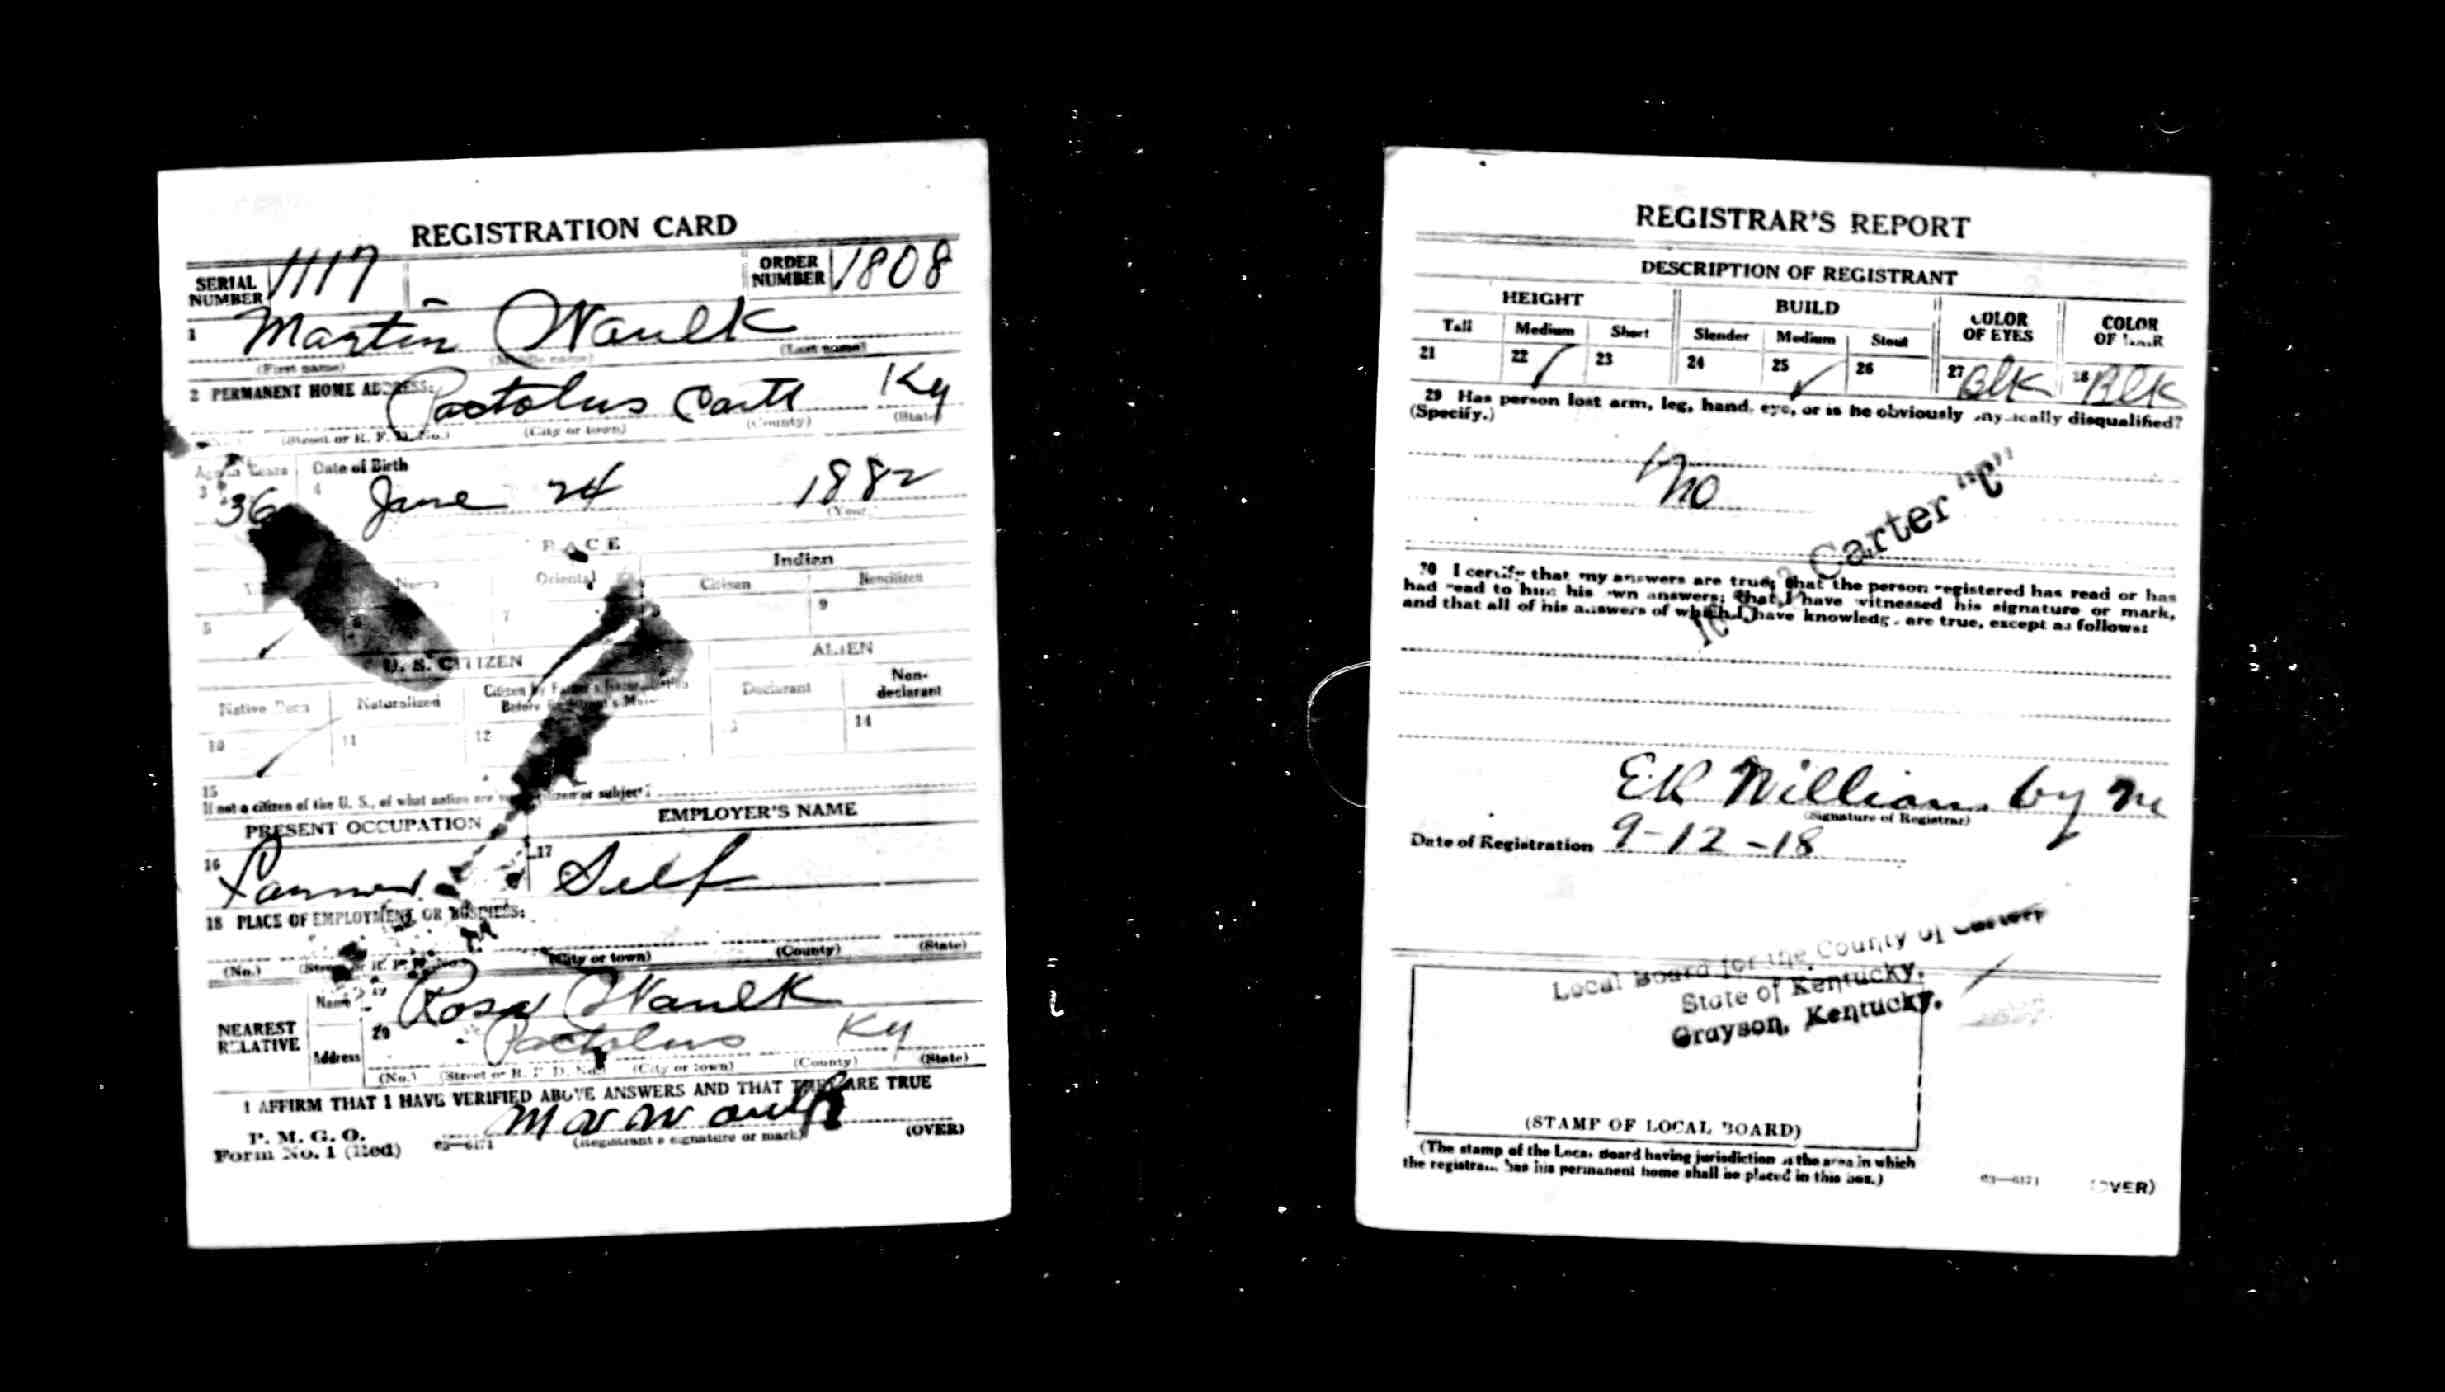 REGISTRATION CARD
SERIAL NUMBER 1117 ORDER NUMBER 1808
1 Martin Waulk
(First name) (Middle name) (Last name)
2 PERMANENT HOME ADDRESS: Pactolus Carte Ky
(Street or R. F. D. No.) (City or town) (County) (State)
Age in Years Date of Birth
3 36 4 June 24 1882
(Year)
RACE
Indian
Oriental Citizen Noncitizen
5 7 9
U. S. CITIZEN ALIEN
Native Born Naturalized Citizen by Father's Before Declarant Non-declarant
10 11 12 14
15
If not a citizen of the U. S., of what nation are citizen or subject?
PRESENT OCCUPATION EMPLOYER'S NAME
16 Farmer 17 Self
18 PLACE OF EMPLOYMENT OR BUSINESS:
(No.) (Street or R. F. D. No.) (City or town) (County) (State)
NEAREST RELATIVE
Name 19 Rosa Waulk
Address 20 Pactolus Ky
(No.) (Street or R. F. D. No.) (City or town) (County) (State)
I AFFIRM THAT I HAVE VERIFIED ABOVE ANSWERS AND THAT THEY ARE TRUE
P. M. G. O.
Form No. 1 (Red) 03—6171 M V Waulk (Registrant's signature or mark) (OVER)
REGISTRAR'S REPORT
DESCRIPTION OF REGISTRANT
HEIGHT BUILD COLOR OF EYES COLOR OF HAIR
Tall Medium Short Slender Medium Stout
21 22 ✓ 23 24 25 ✓ 26 27 Blk 28 Blk
29 Has person lost arm, leg, hand, eye, or is he obviously physically disqualified?
(Specify.)
No
Carter "C"
30 I certify that my answers are true; that the person registered has read or has
had read to him his own answers; that I have witnessed his signature or mark,
and that all of his answers of which I have knowledge are true, except as follows:
E R William by
(Signature of Registrar)
Date of Registration 9-12-18
Local Board for the County of Carter
State of Kentucky,
Grayson, Kentucky.
(STAMP OF LOCAL BOARD)
(The stamp of the Local Board having jurisdiction of the area in which
the registrant has his permanent home shall be placed in this box.)
03—6171 (OVER)